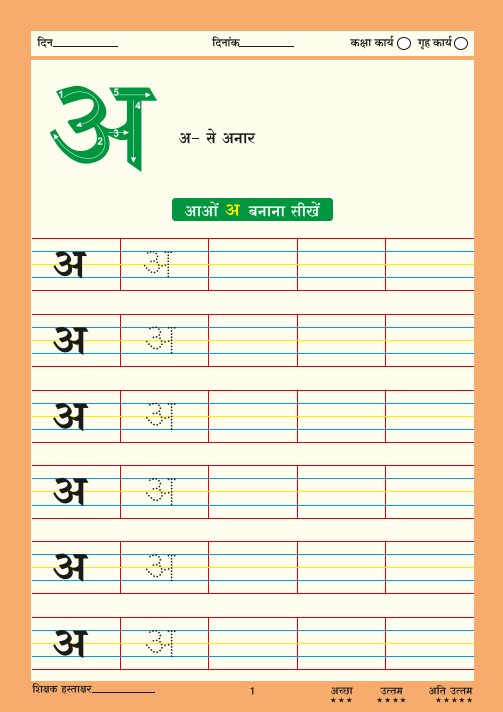 दिन__________ दिनांक__________ कक्षा कार्य ◯ गृह कार्य ◯
अ
1 2 3 4 5
अ- से अनार
आओं अ बनाना सीखें
अ अ
अ अ
अ अ
अ अ
अ अ
अ अ
शिक्षक हस्ताक्षर__________ 1 अच्छा उत्तम अति उत्तम
★★★ ★★★★ ★★★★★